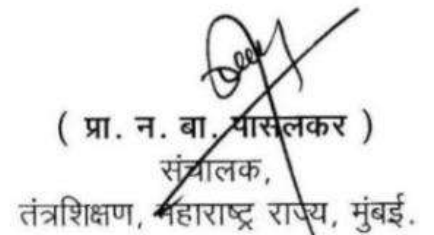 ( प्रा. न. बा. पासलकर )
संचालक,
तंत्रशिक्षण, महाराष्ट्र राज्य, मुंबई.